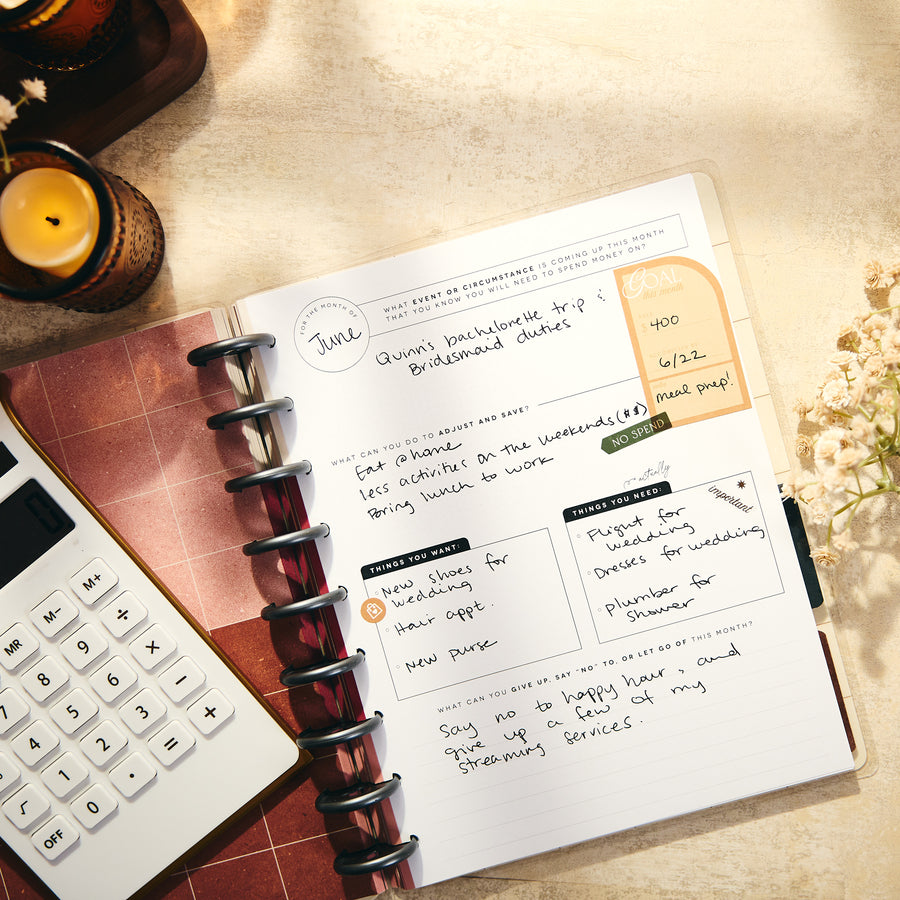 FOR THE MONTH OF
June
WHAT EVENT OR CIRCUMSTANCE IS COMING UP THIS MONTH
THAT YOU KNOW YOU WILL NEED TO SPEND MONEY ON?
Quinn's bachelorette trip &
Bridesmaid duties
GOAL
this month
$ 400
6/22
meal prep!
WHAT CAN YOU DO TO ADJUST AND SAVE?
Eat @ home
less activities on the weekends ($$)
Bring lunch to work
NO SPEND
actually
THINGS YOU WANT:
New shoes for
wedding
Hair appt.
New purse
THINGS YOU NEED:
important
Flight for
wedding
Dresses for wedding
Plumber for
shower
WHAT CAN YOU GIVE UP, SAY "NO" TO, OR LET GO OF THIS MONTH?
Say no to happy hour, and
give up a few of my
streaming services.
MR M− M+
÷
7 8 9 ×
4 5 6 −
1 2 3 +
√ 0 • =
OFF